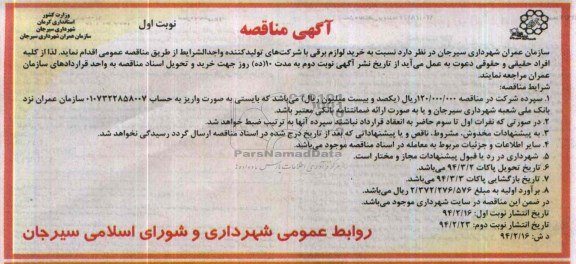 وزارت کشور
استانداری کرمان
شهرداری سیرجان
سازمان عمران شهرداری سیرجان
نوبت اول
آگهی مناقصه
سازمان عمران شهرداری سیرجان در نظر دارد نسبت به خرید لوازم برقی با شرکت‌های تولیدکننده واجدالشرایط از طریق مناقصه عمومی اقدام نماید. لذا از کلیه
افراد حقیقی و حقوقی دعوت به عمل می‌آید از تاریخ نشر آگهی نوبت دوم به مدت ۱۰(ده) روز جهت خرید و تحویل اسناد مناقصه به واحد قراردادهای سازمان
عمران مراجعه نمایند.
شرایط مناقصه:
۱. سپرده شرکت در مناقصه ۱۲۰/۰۰۰/۰۰۰ریال (یکصد و بیست میلیون ریال) می‌باشد که بایستی به صورت واریز به حساب ۰۱۰۷۳۲۲۸۵۸۰۰۷ سازمان عمران نزد
بانک ملی شعبه شهرداری سیرجان و یا به صورت ارائه ضمانتنامه بانکی معتبر باشد.
۲. در صورتی که نفرات اول تا سوم حاضر به انعقاد قرارداد نباشند سپرده آنها به ترتیب ضبط خواهد شد.
۳. به پیشنهادات مخدوش، مشروط، ناقص و یا پیشنهاداتی که بعد از تاریخ درج شده در اسناد مناقصه ارسال گردد رسیدگی نخواهد شد.
۴. سایر اطلاعات و جزئیات مربوط به معامله در اسناد مناقصه موجود می‌باشد.
۵. شهرداری در رد یا قبول پیشنهادات مجاز و مختار است.
۶. تاریخ تحویل پاکات ۹۴/۳/۲ می‌باشد.
۷. تاریخ بازگشایی پاکات ۹۴/۳/۳ می‌باشد.
۸. برآورد اولیه به مبلغ ۲/۳۷۲/۲۷۶/۵۷۶ ریال می‌باشد.
در ضمن این مناقصه در سایت شهرداری موجود می‌باشد.
تاریخ انتشار نوبت اول: ۹۴/۲/۱۶
تاریخ انتشار نوبت دوم: ۹۴/۲/۲۳
د ش: ۹۴/۲/۱۶
روابط عمومی شهرداری و شورای اسلامی سیرجان
ParsNamadData